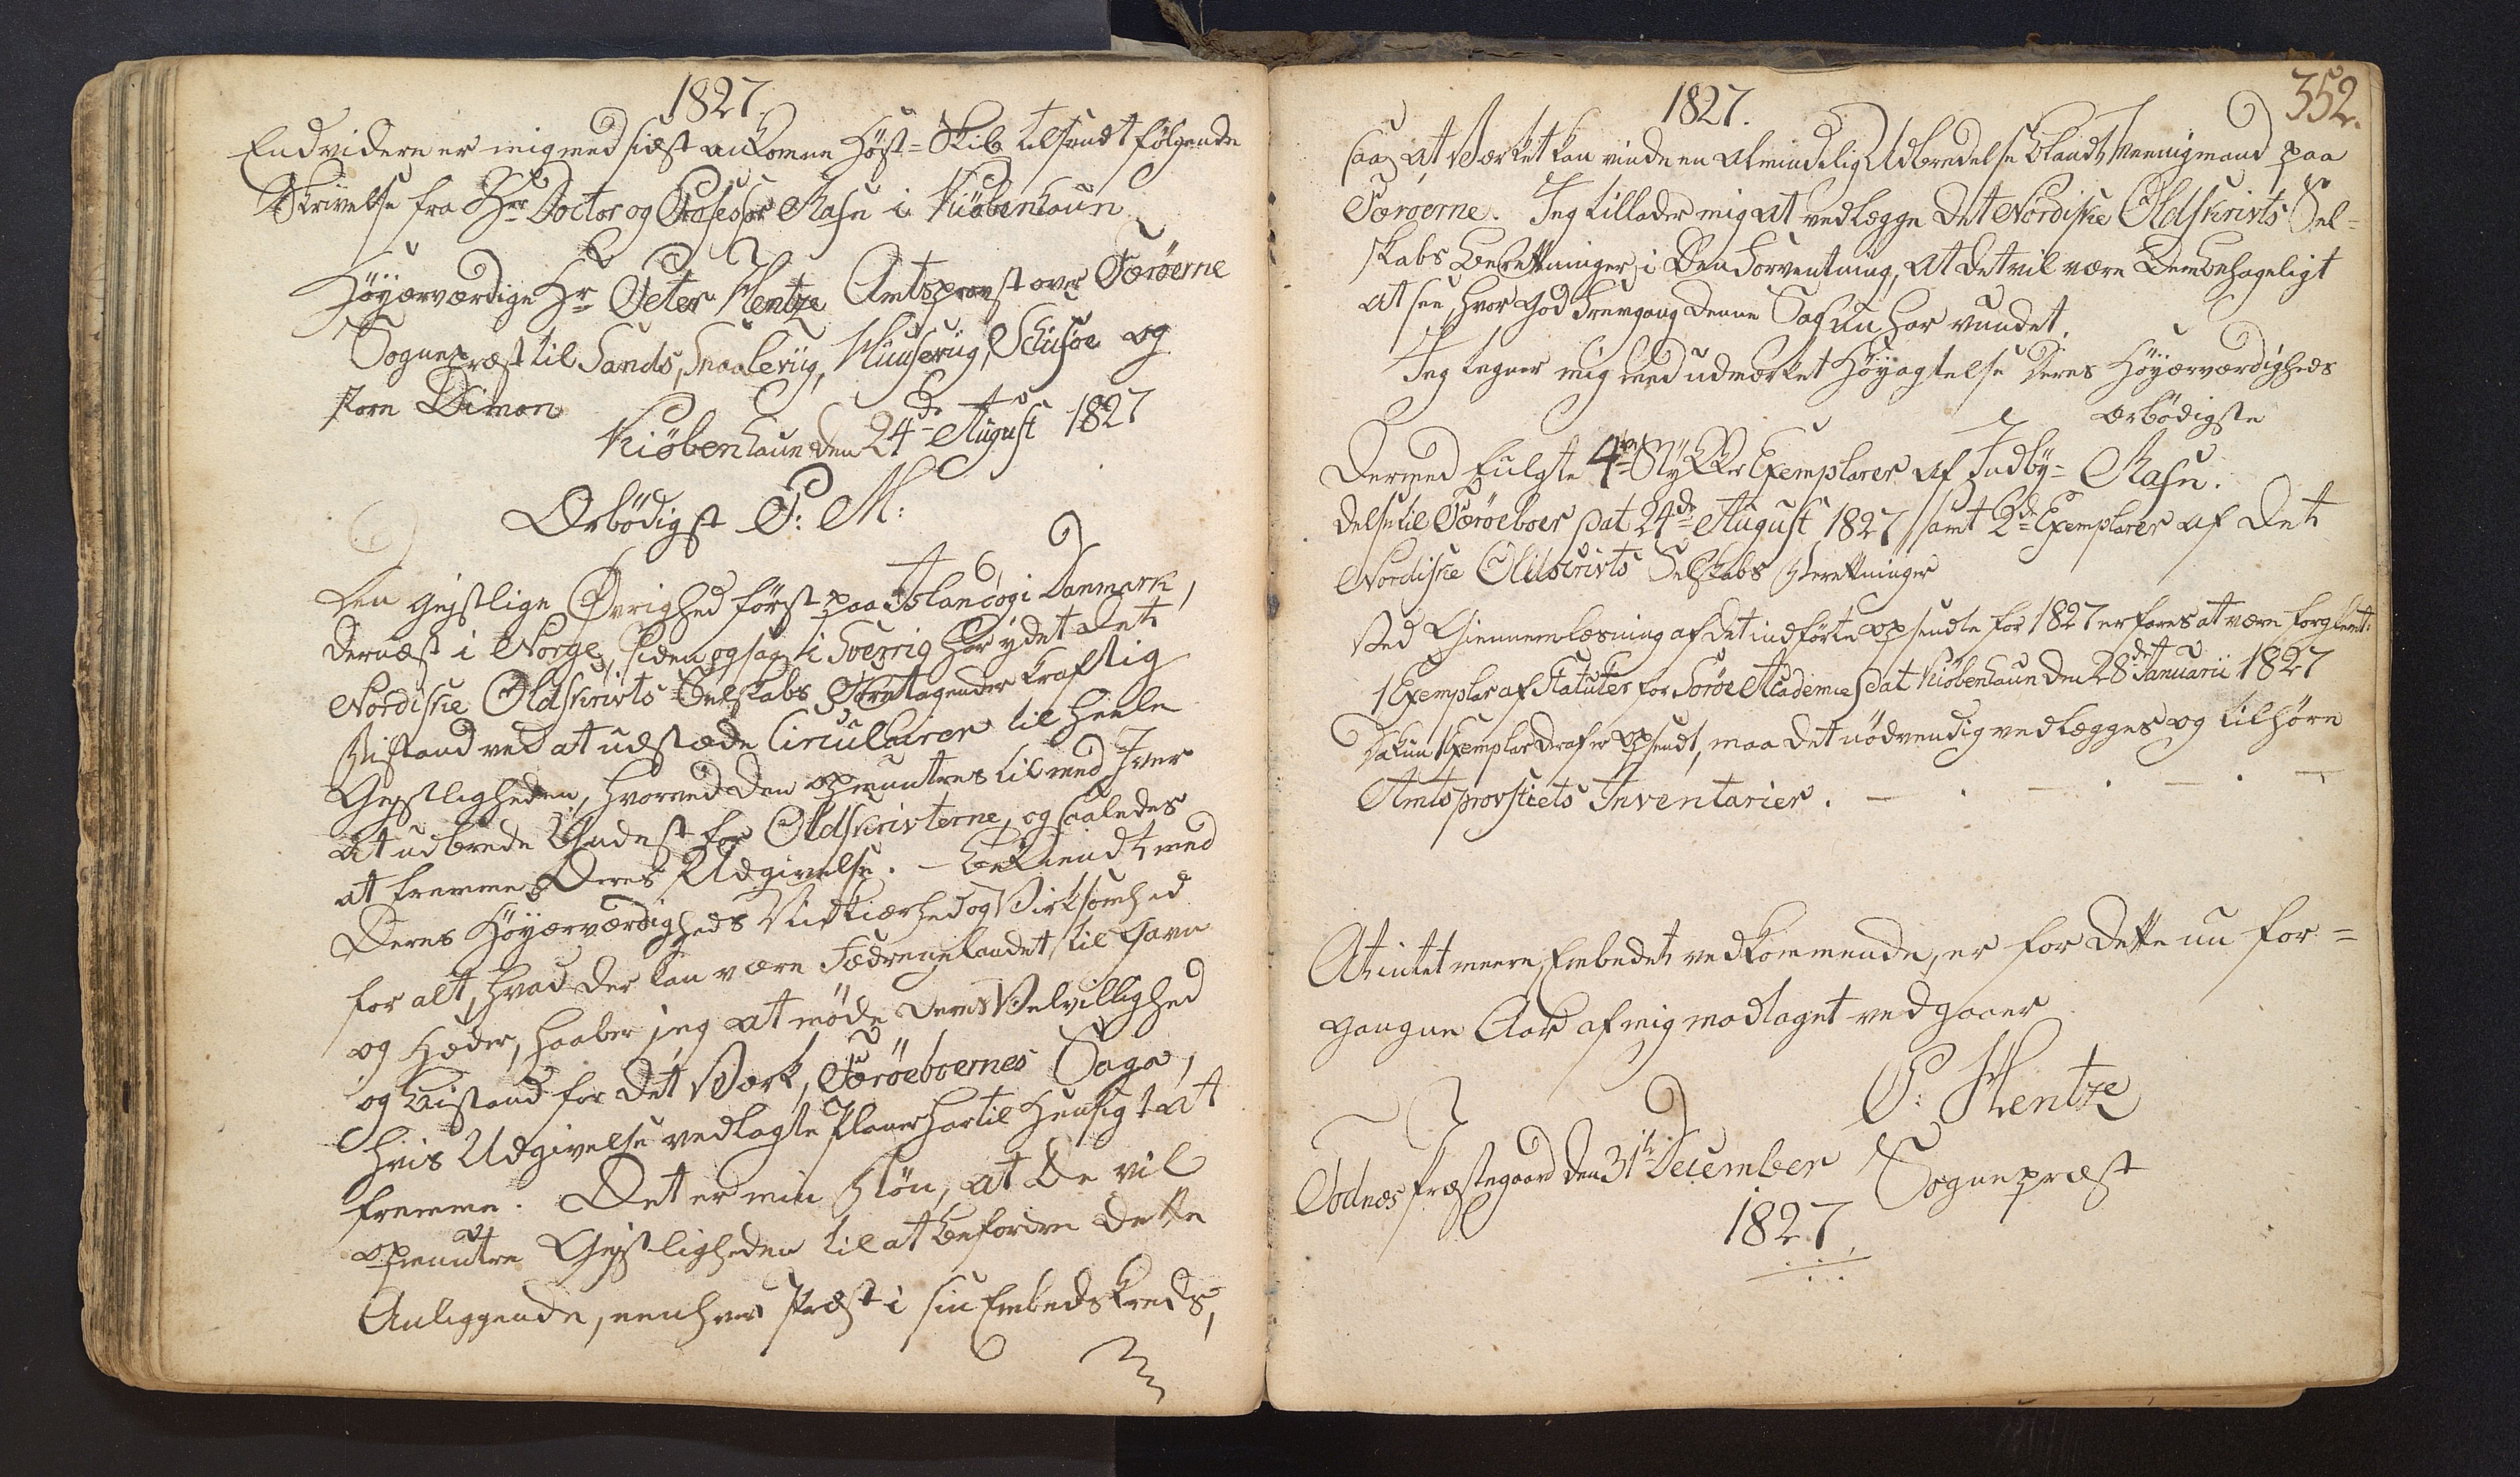 1827.
Endvidere er mig med sidst ankomne Höst=Skib tilsendt følgende
Skrivelse fra Hr Doctor og Professor Rafn i Kiøbenhavn
Höyærværdige Hr Peter Hentze Amtsprovst over Færöerne
Sognepræst til Sands, Skaalevüg, Hüüsevüg, Schüföe og
store Dimon
Kiöbenhavn den 24de August 1827
Ærbödigst P. M:
Den gejstlige Øvrighed först paa Island og i Danmark,
dernæst i Norge, siden ogsaa i Sverrig har ydet det
Nordiske Oldskrivts Selskabs Foretagender kraftig
Bistand ved at udstæde Circulairer til heele
Gejstligheden, hvorved den opmuntres til med Iver
at udbrede Yndest for Oldskrivterne, og saaledes
at fremme Deres Udgivelse. - Bekiendt med
Deres Höyærværdigheds Nidkiærhed og Virksomhed
for alt, hvad der kan være Fædrenelandet til Gavn
og Hæder, haaber jeg at möde Deres Velvillighed
og Bistand for det Værk, Færöeboernes Saga,
hvis Udgivelse vedlagte Planer har til Hensigt at
fremme. Det er min Bön, at De vil
opmuntre Gejstligheden til at befordre dette
Anliggende, eenhver Præst i sin Embedskreds,
352.
1827.
saa at Værket kan vinde en almindelig Udbredelse blandt Menigmand paa
Færöerne. Jeg tillader mig at vedlægge det Nordiske Oldskrivts Sel=
skabs Beretninger, i den Forventning, at det vil være Dem behageligt
at see, hvor god Fremgang denne Sag nu har vundet.
Jeg tegner mig med udmærket Höyagtelse Deres Höyærværdigheds
ærbödigste
Dermed fulgte 4re Stykker Exemplarer af Indby= Rafn.
delse til Færöeboer dat 24de August 1827 samt 2de Exemplarer af det
Nordiske Oldskrivts Selskabs Beretninger
Ved Giennemlæsning af det indförte opsendte for 1827 erfares at være forglemt:
1 Exemplar af Statuter for Soröe Academie dat Kiöbenhavn den 28de Januarii 1827
Da kun 1 Exemplar deraf er opsendt, maa det nödvendig vedlægges og tilhöre
Amtsprovstiets Inventarier. - . - . - . -
At intet meere, Embedet vedkommende, er for dette nu for=
gangne Aar af mig modtaget vedgaaer
P: Hentze
Todnes Præstegaard den 31te December Sognepræst
1827